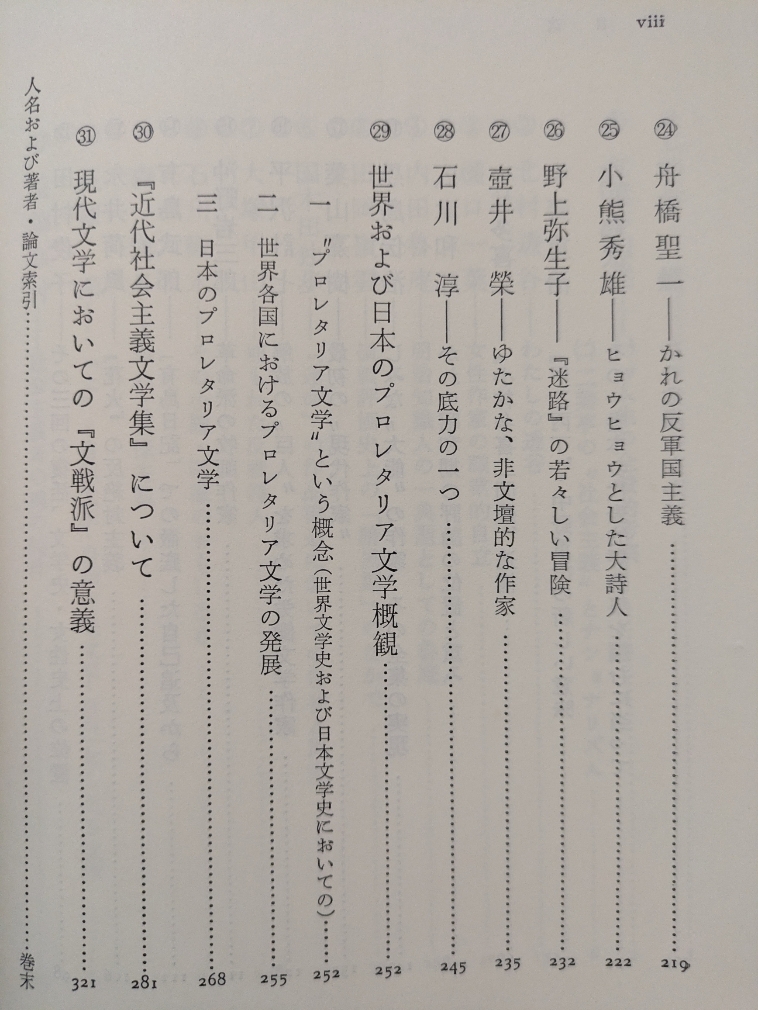 viii
㉔ 舟橋聖一――かれの反軍国主義……219
㉕ 小熊秀雄――ヒョウヒョウとした大詩人……222
㉖ 野上弥生子――『迷路』の若々しい冒険……232
㉗ 壺井榮――ゆたかな、非文壇的な作家……235
㉘ 石川淳――その底力の一つ……245
㉙ 世界および日本のプロレタリア文学概観……252
一 〝プロレタリア文学〟という概念(世界文学史および日本文学史においての)……252
二 世界各国におけるプロレタリア文学の発展……255
三 日本のプロレタリア文学……268
㉚ 『近代社会主義文学集』について……281
㉛ 現代文学においての『文戦派』の意義……321
人名および著者・論文索引……巻末